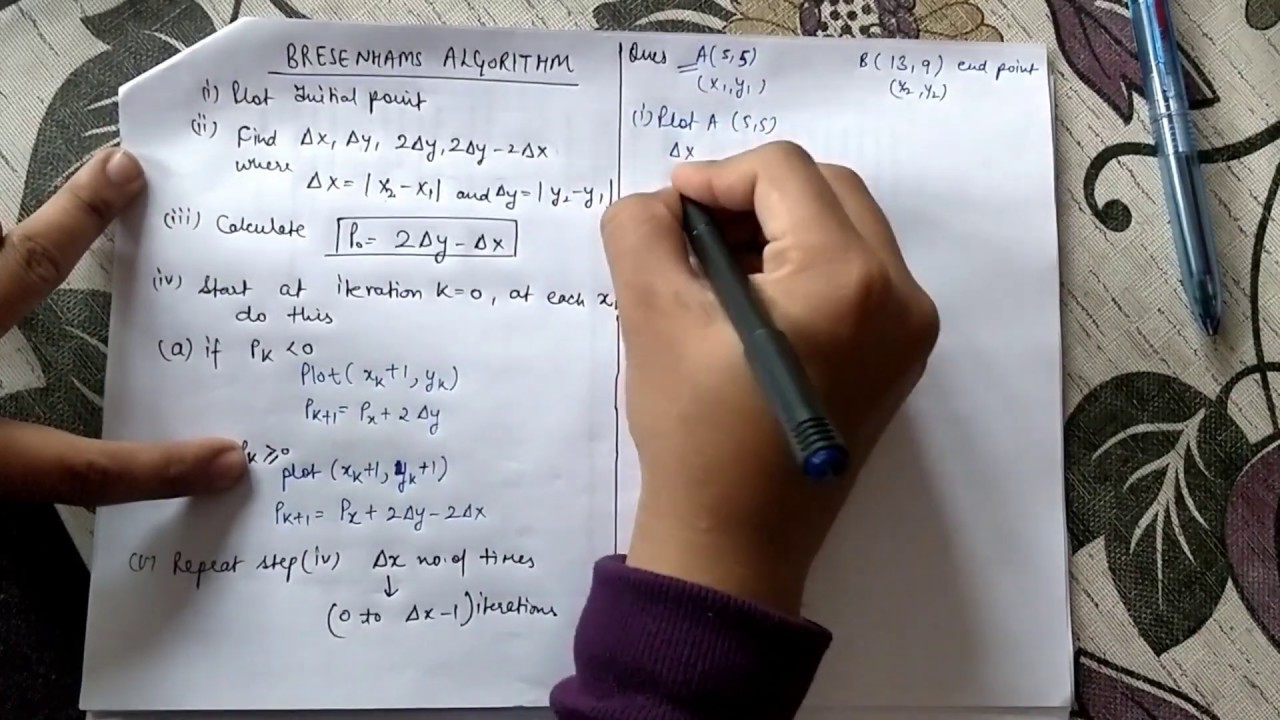 BRESENHAMS ALGORITHM
(i) Plot Initial point
(ii) Find Δx, Δy, 2Δy, 2Δy-2Δx
where
Δx = |x₂-x₁| and Δy = |y₂-y₁|
(iii) Calculate P₀ = 2Δy - Δx
(iv) Start at iteration K=0, at each x
do this
(a) if Pₖ <0
Plot(xₖ+1, yₖ)
Pₖ₊₁ = Pₓ + 2Δy
k ⩾0
plot (xₖ+1, yₖ+1)
Pₖ₊₁ = Pₓ + 2Δy - 2Δx
(v) Repeat step(iv) Δx no.of times
↓
(0 to Δx-1) iterations
Ques A(5,5) B(13,9) end point
(x₁,y₁) (x₂,y₂)
(i) Plot A (5,5)
Δx